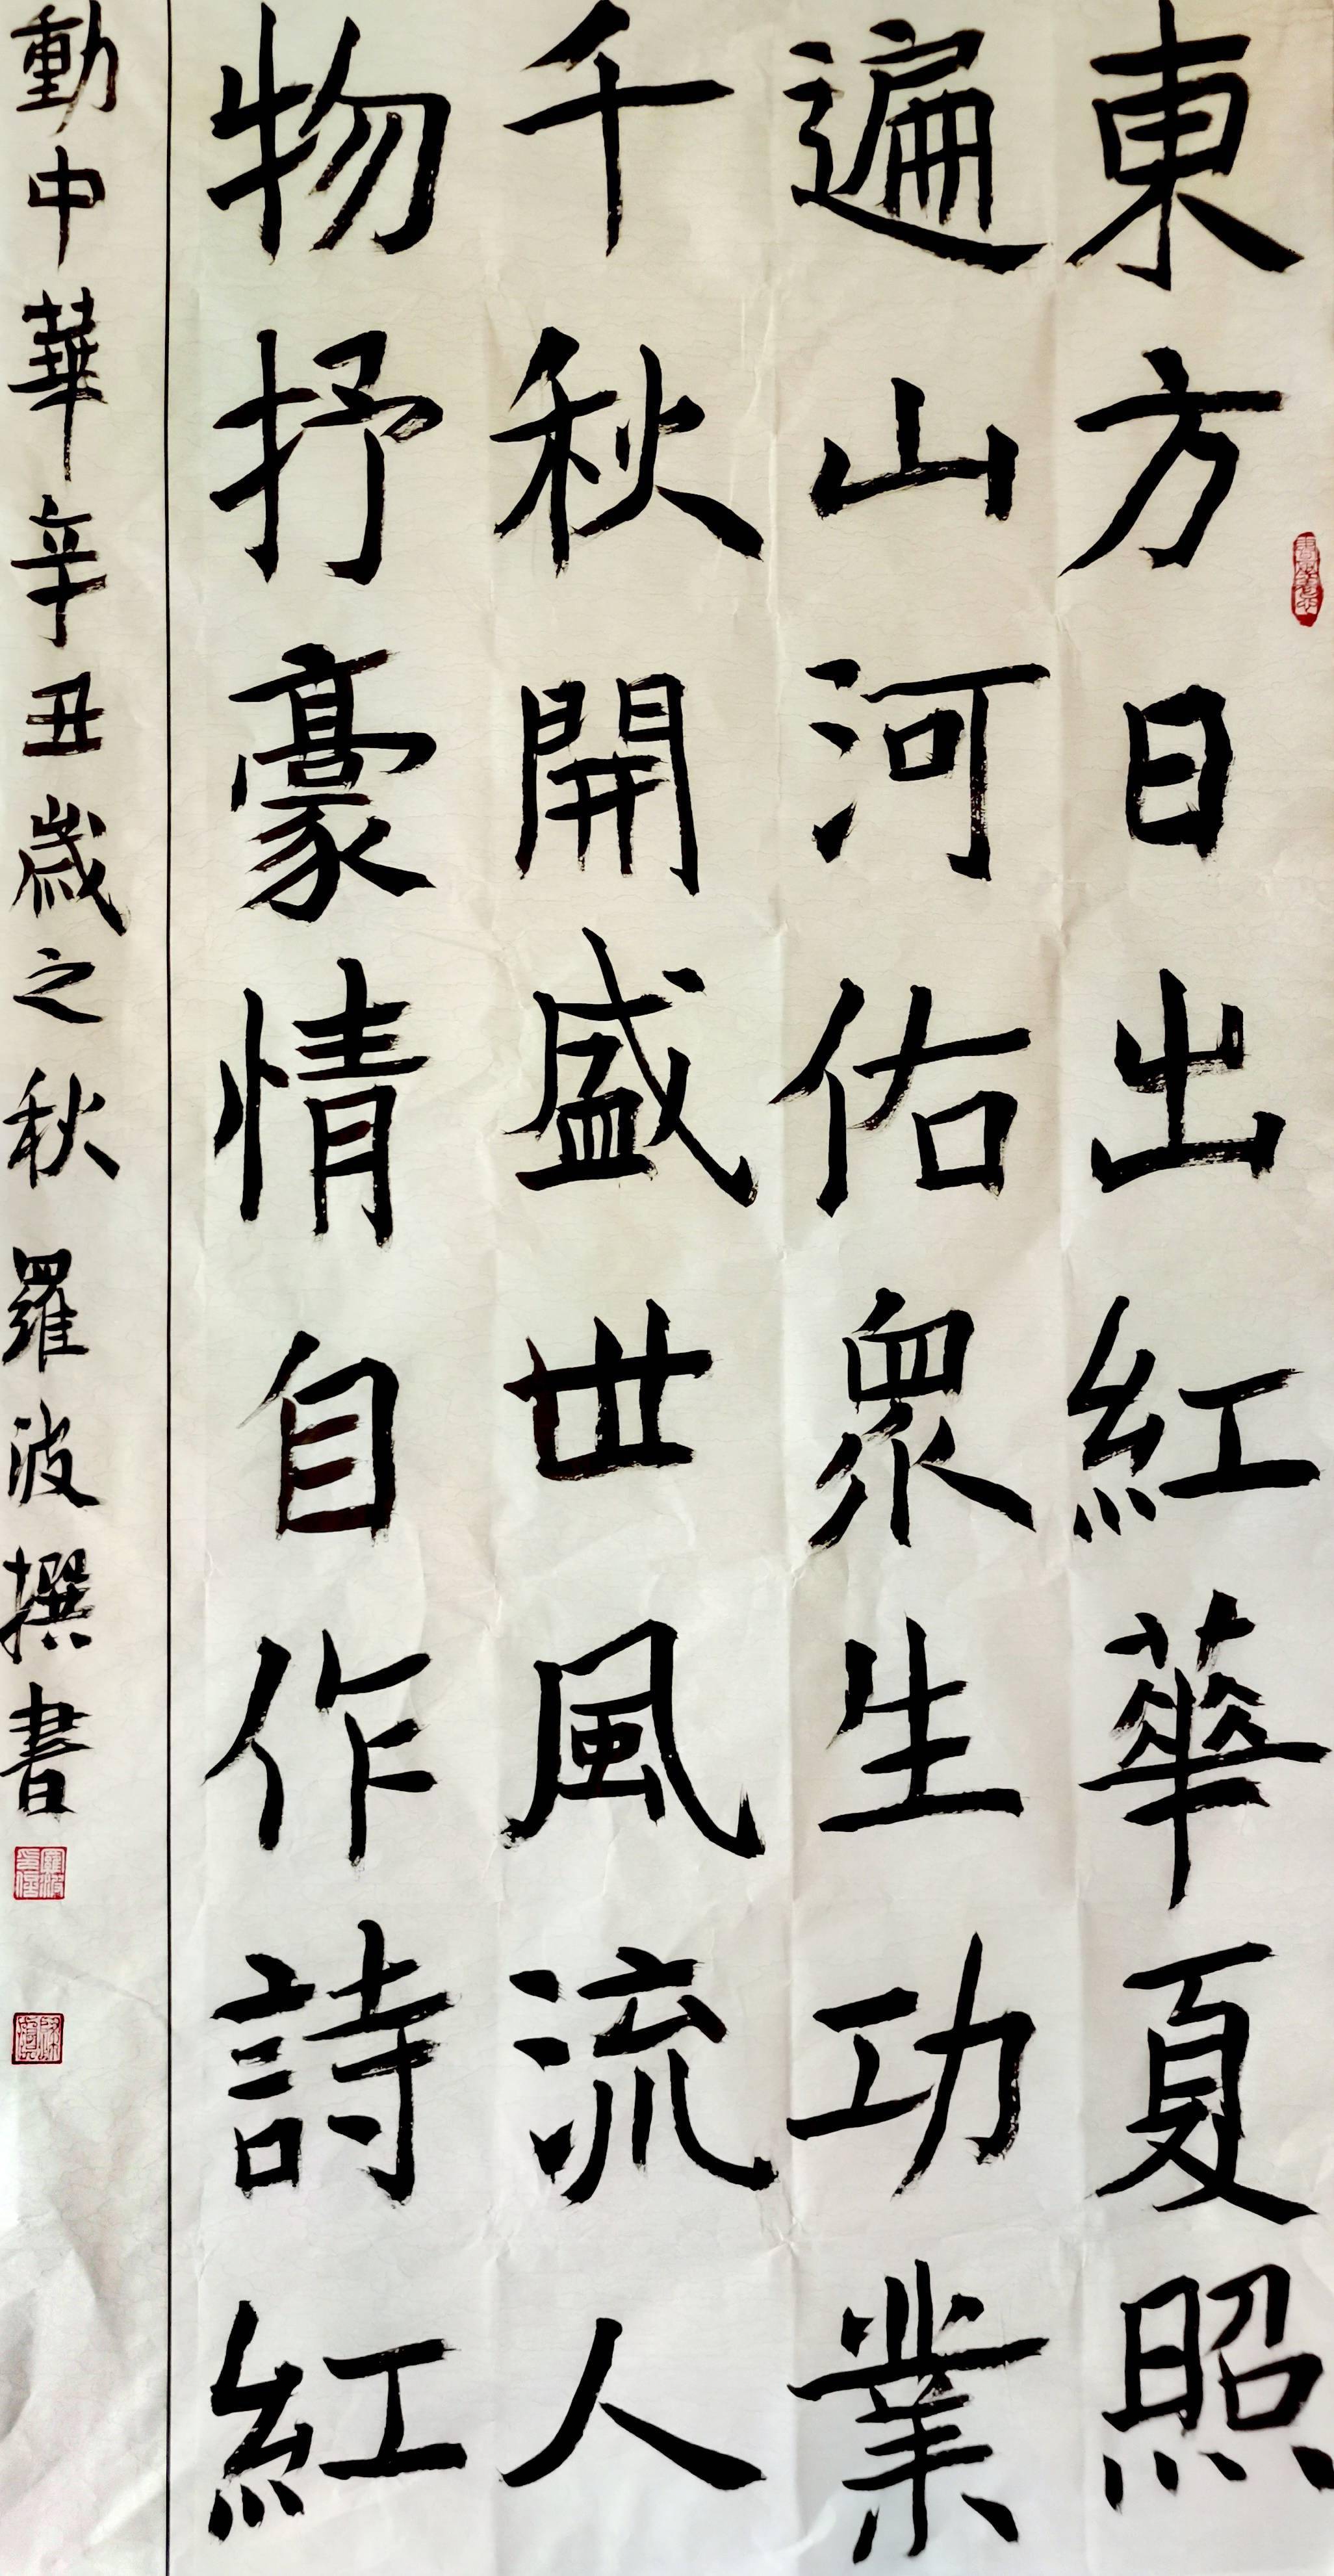 東方日出紅華夏照
遍山河佑衆生功業
千秋開盛世風流人
物抒豪情自作詩紅
動中華辛丑歲之秋羅波撰書